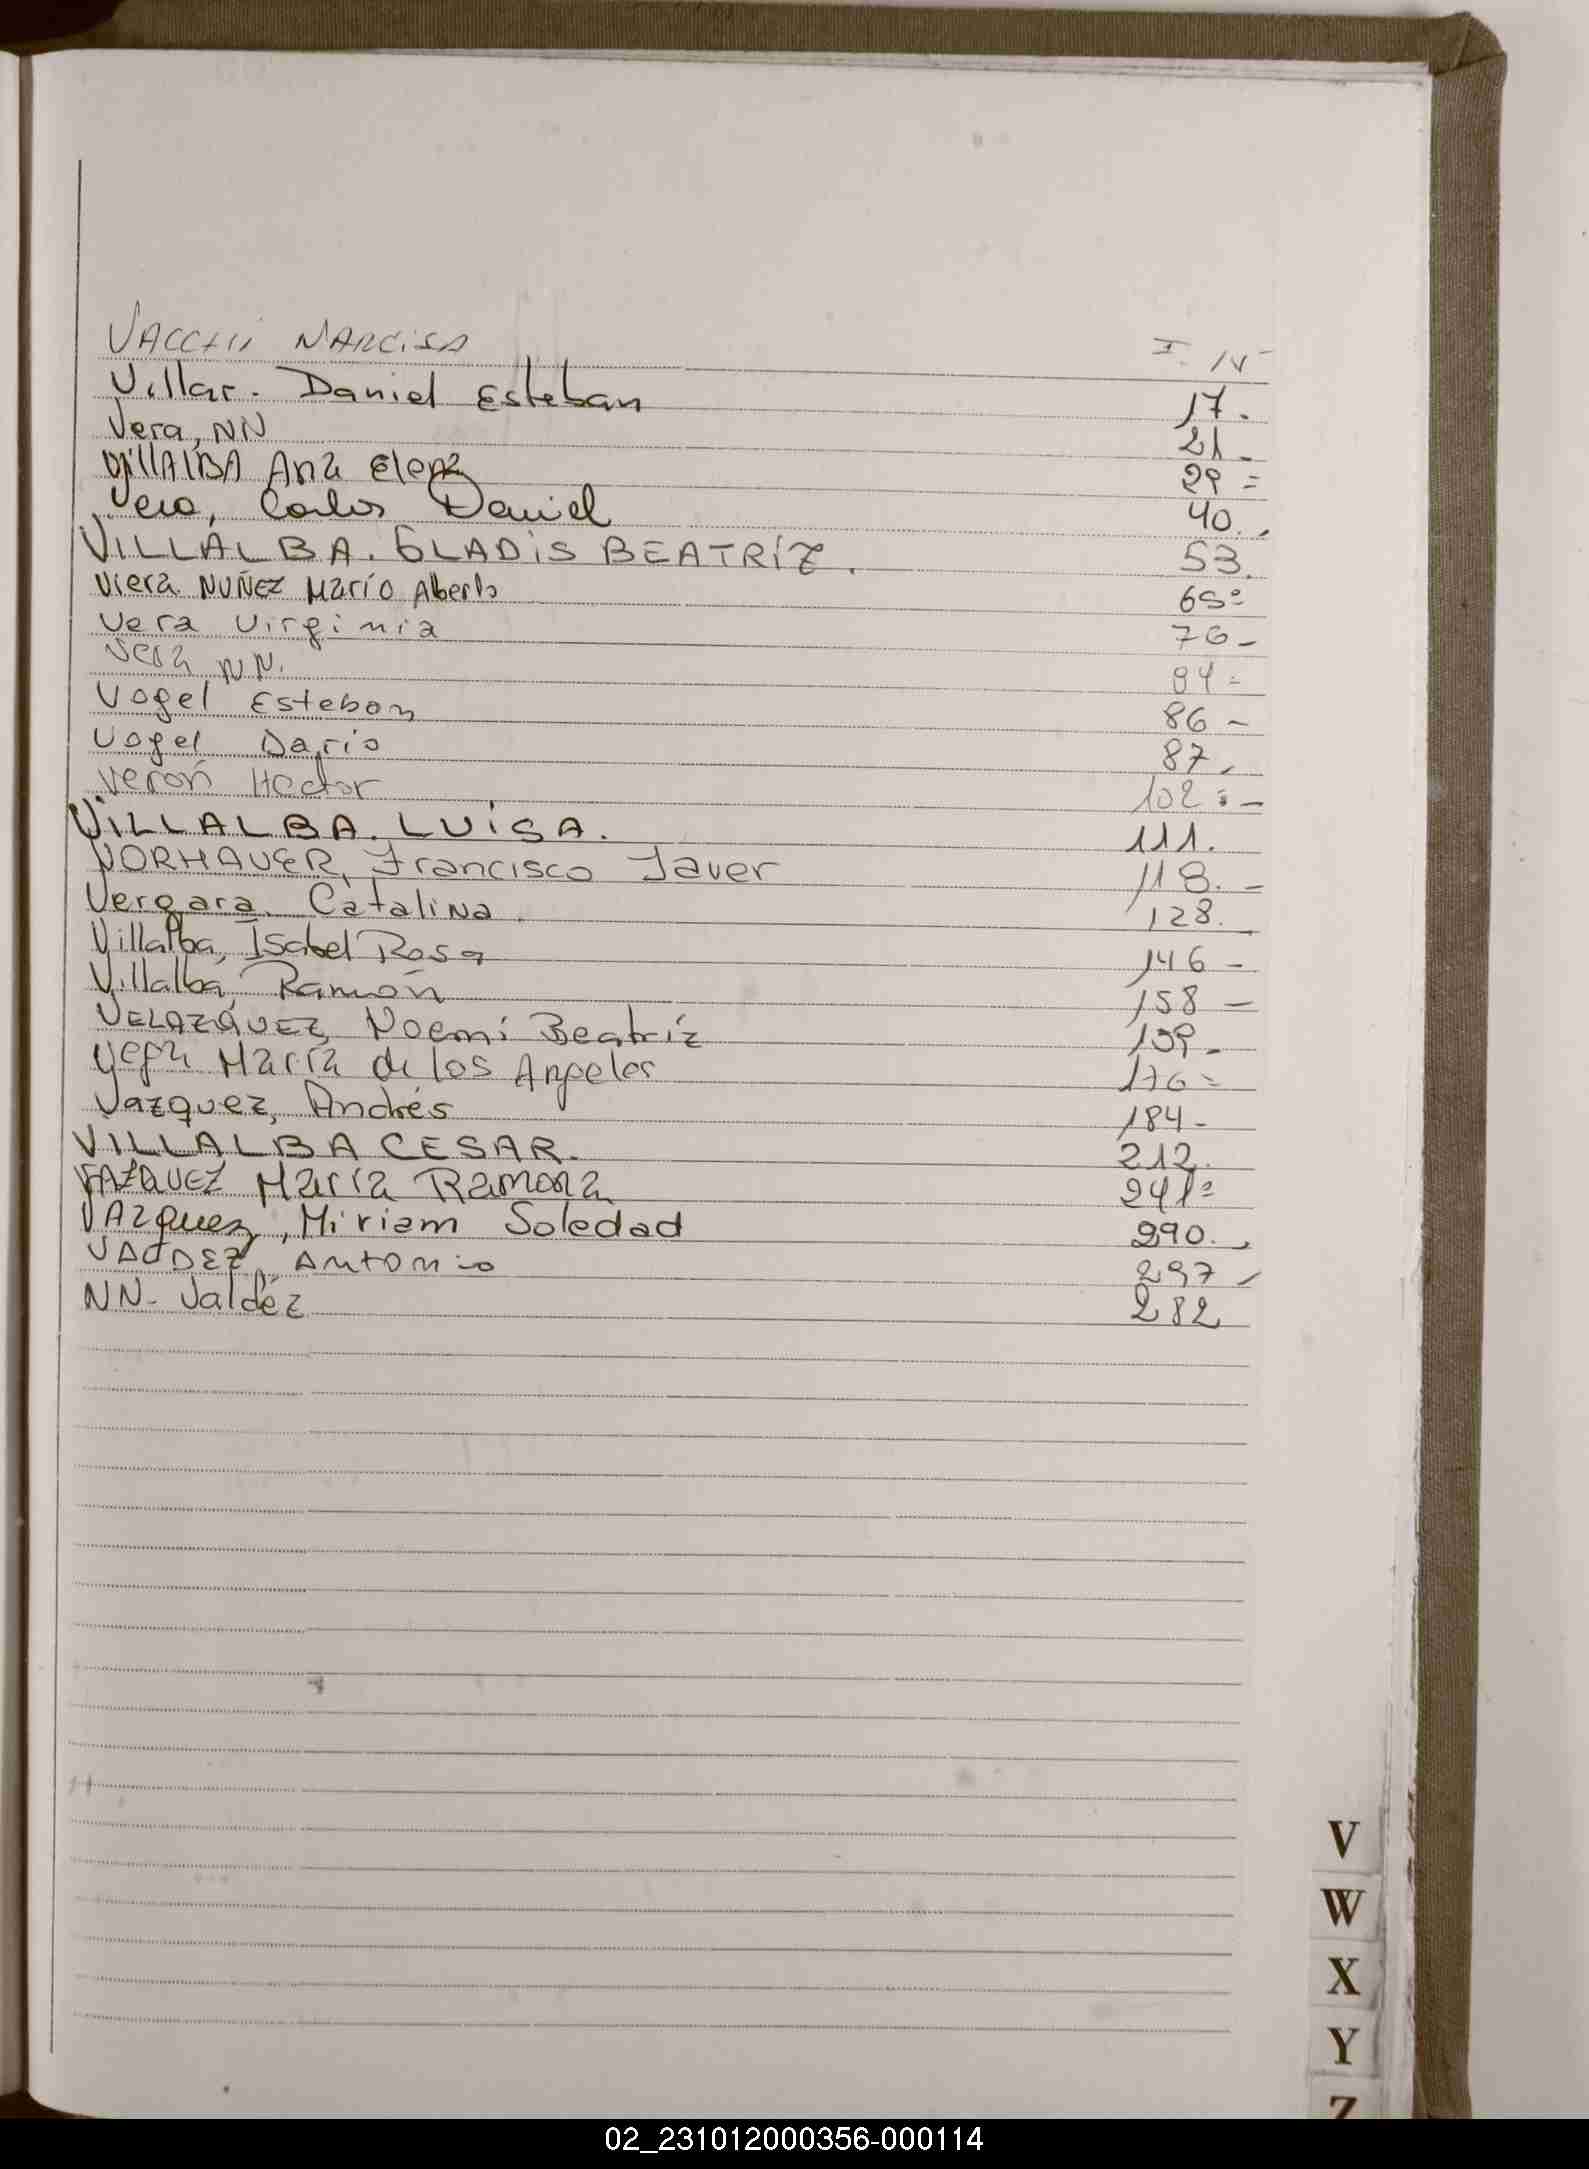 VACCHI NARCISA I. IV
Villar. Daniel Esteban 17.
Vera, NN 21-
VillALBA Ana Elena 29=
Vera, Carlos Daniel 40.,
VILLALBA. GLADIS BEATRIZ. 53.
Viera NUÑEZ Mario Alberto 65=
Vera Virginia 76-
Vera NN. 84=
Vogel Esteban 86-
Vogel Dario 87,
Verón Hector 102=-
VILLALBA. LUISA. 111.
VORHAUER, Francisco Javer 118.-
Vergara, Catalina. 128.
Villalba, Isabel Rosa 146-
Villalba, Ramón 158-
VELAZQUEZ, Noemí Beatríz 159-
María de los Angeles 176=
Vazquez, Andrés 184-
VILLALBA CESAR. 212.
VAZQUEZ María Ramona 241=
VAzquez, Miriam Soledad 290.,
VALDEZ, Antonio 297-
NN- Valdéz 282
V
W
X
Y
Z
02_231012000356-000114